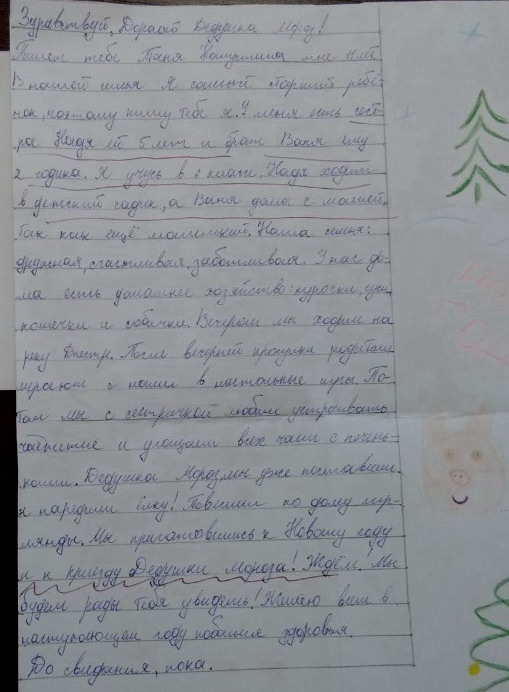 Здравствуй, Дорогой Дедушка Мороз!
Пишет тебе Таня мне лет
В нашей семье Я самый старший ребё-
нок, поэтому пишу тебе я. У меня есть сест-
ра Надя ей 5 лет и брат Ваня ему
2 годика. Я учусь в 6 классе. Надя ходит
в детский садик, а Ваня дома с мамой.
Так как ещё маленький. Наша семья:
дружная, счастливая, заботливая. У нас до-
ма есть домашнее хозяйство: курочки, гуси,
кошечки и собачки. Вечером мы ходим на
реку Днестр. После вечерней прогулки родители
играют с нами в настольные игры. По-
том мы с сестричкой любим устраивать
чаепитие и угощаем всех чаем с печень-
ками. Дедушка Мороз мы уже поставили
и нарядили ёлку! Повесили по дому гир-
лянды. Мы приготовились к Новому году
и к приезду Дедушки Мороза! Ждём. Мы
будем рады тебя увидеть! Желаю всем в
наступающем году побольше здоровья.
До свидания, пока.